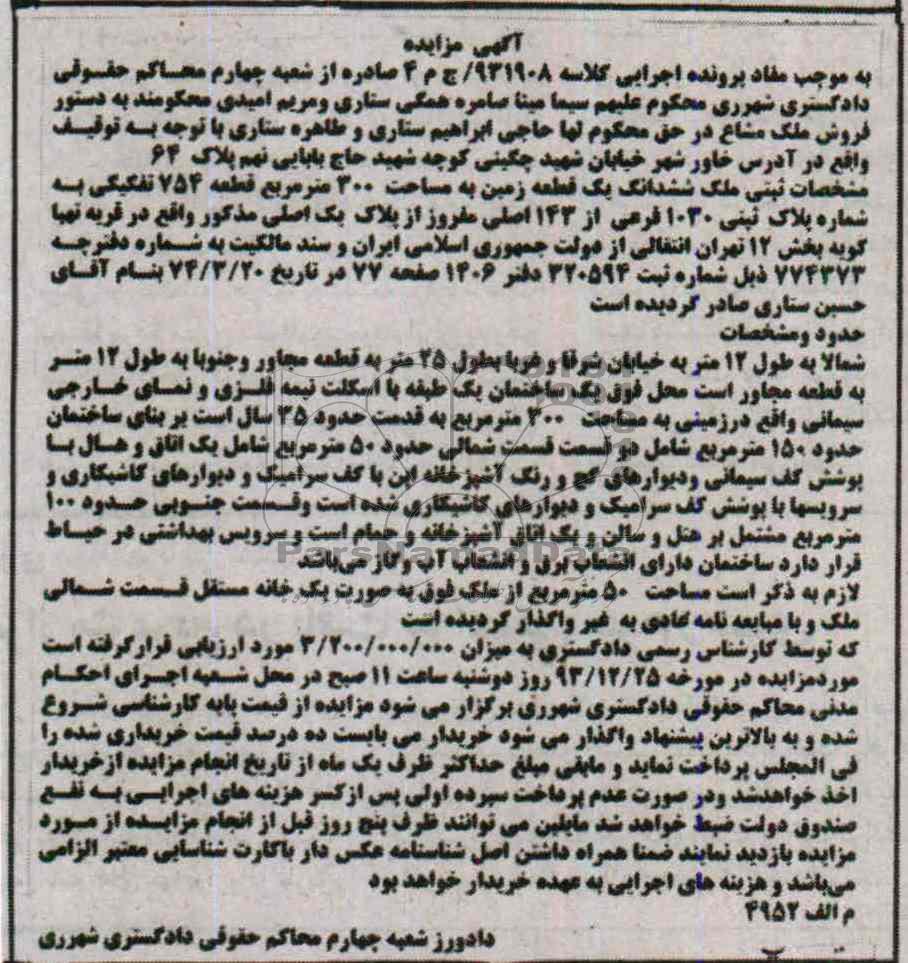 آگهی مزایده
به موجب مفاد پرونده اجرایی کلاسه ۹۳۱۹۰۸/ ج م ۴ صادره از شعبه چهارم محاکم حقوقی
دادگستری شهرری محکوم علیهم سیما مینا صامره همگی ستاری ومریم امیدی محکومند به دستور
فروش ملک مشاع در حق محکوم لها حاجی ابراهیم ستاری و طاهره ستاری با توجه به توقیف
واقع در آدرس خاور شهر خیابان شهید چگینی کوچه شهید حاج بابایی نهم پلاک ۶۴
مشخصات ثبتی ملک ششدانگ یک قطعه زمین به مساحت ۳۰۰ مترمربع قطعه ۷۵۴ تفکیکی به
شماره پلاک ثبتی ۱۰۳۰ فرعی از ۱۴۳ اصلی مفروز از پلاک یک اصلی مذکور واقع در قریه تهیا
کویه بخش ۱۲ تهران انتقالی از دولت جمهوری اسلامی ایران و سند مالکیت به شماره دفترچه
۷۷۴۳۷۳ ذیل شماره ثبت ۳۲۰۵۹۴ دفتر ۱۴۰۶ صفحه ۷۷ در تاریخ ۷۴/۳/۲۰ بنام آقای
حسین ستاری صادر گردیده است
حدود ومشخصات
شمالا به طول ۱۲ متر به خیابان شرقا و غربا بطول ۲۵ متر به قطعه مجاور وجنوبا به طول ۱۲ متر
به قطعه مجاور است محل فوق یک ساختمان یک طبقه با اسکلت نیمه فلزی و نمای خارجی
سیمانی واقع درزمینی به مساحت ۳۰۰ مترمربع به قدمت حدود ۳۵ سال است بر بنای ساختمان
حدود ۱۵۰ مترمربع شامل دو قسمت قسمت شمالی حدود ۵۰ مترمربع شامل یک اتاق و هال با
پوشش کف سیمانی ودیوارهای گچ و رنگ آشپزخانه اپن با کف سرامیک و دیوارهای کاشیکاری و
سرویسها با پوشش کف سرامیک و دیوارهای کاشیکاری شده است وقسمت جنوبی حدود ۱۰۰
مترمربع مشتمل بر هتل و سالن و یک اتاق آشپزخانه و حمام است و سرویس بهداشتی در حیاط
قرار دارد ساختمان دارای انشعاب برق و انشعاب آب وگاز می‌باشد
لازم به ذکر است مساحت ۵۰ مترمربع از ملک فوق به صورت یک خانه مستقل قسمت شمالی
ملک و با مبایعه نامه عادی به غیر واگذار گردیده است
که توسط کارشناس رسمی دادگستری به میزان ۳/۲۰۰/۰۰۰/۰۰۰ مورد ارزیابی قرارگرفته است
موردمزایده در مورخه ۹۳/۱۲/۲۵ روز دوشنبه ساعت ۱۱ صبح در محل شعبه اجرای احکام
مدنی محاکم حقوقی دادگستری شهرری برگزار می شود مزایده از قیمت پایه کارشناسی شروع
شده و به بالاترین پیشنهاد واگذار می شود خریدار می بایست ده درصد قیمت خریداری شده را
فی المجلس پرداخت نماید و مابقی مبلغ حداکثر ظرف یک ماه از تاریخ انجام مزایده ازخریدار
اخذ خواهدشد ودر صورت عدم پرداخت سپرده اولی پس ازکسر هزینه های اجرایی به نفع
صندوق دولت ضبط خواهد شد مایلین می توانند ظرف پنج روز قبل از انجام مزایده از مورد
مزایده بازدید نمایند ضمنا همراه داشتن اصل شناسنامه عکس دار باکارت شناسایی معتبر الزامی
می‌باشد و هزینه های اجرایی به عهده خریدار خواهد بود
م الف ۴۹۵۲
دادورز شعبه چهارم محاکم حقوقی دادگستری شهرری
ParsNamadData